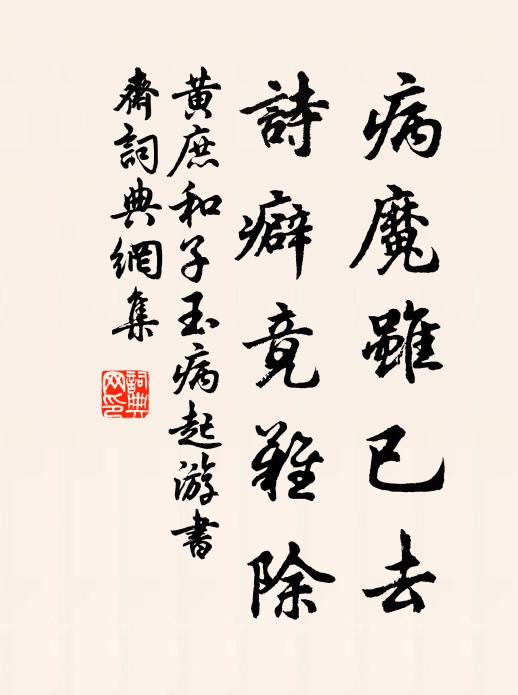 病魔雖已去
詩癖竟難除
黄庶和子玉病起游書
齋詞典網集
詞典网印